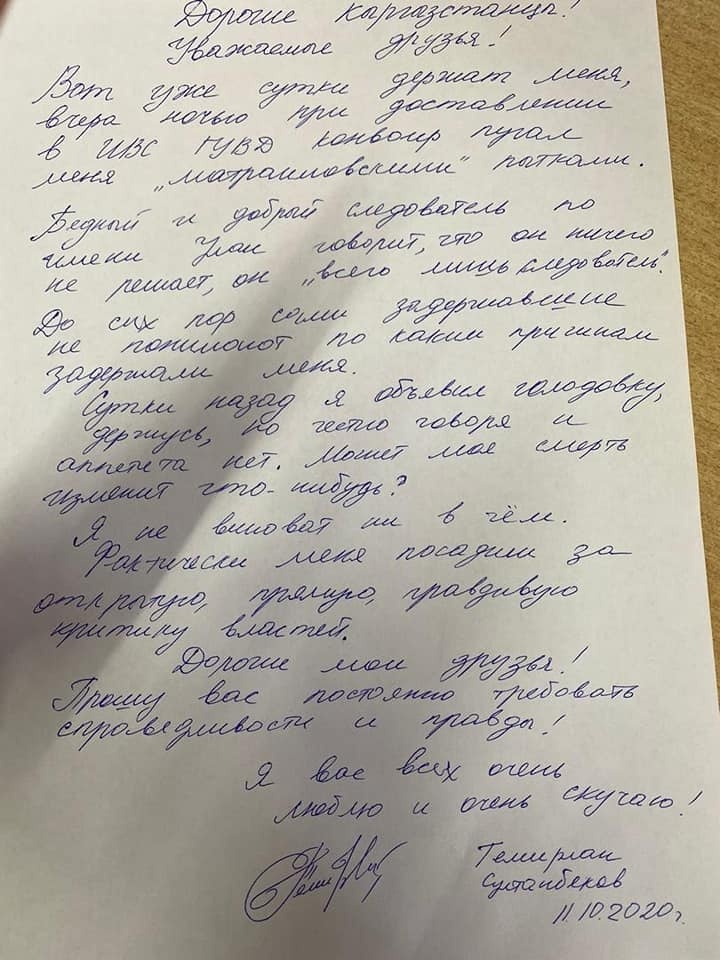 Дорогие Кыргазстанцы!
Уважаемые друзья!
Вот уже сутки держат меня,
вчера ночью при доставлении
в ИВС ГУВД конвоир пугал
меня „матраимовскими" пытками.
Бедный и добрый следователь по
имени Улан говорит, что он ничего
не решает, он „всего лишь следователь".
До сих пор сами задержавшие
не понимают по каким причинам
задержали меня.
Сутки назад я объявил голодовку,
держусь, но честно говоря и
аппетета нет. Может моя смерть
изменит что-нибудь?
Я не виноват ни в чём.
Фактически меня посадили за
открытую, прямую, правдивую
критику властей.
Дорогие мои друзья!
Прошу вас постоянно требовать
справедливости и правды!
Я вас всех очень
люблю и очень скучаю!
Темирлан
Султанбеков
11.10.2020г.